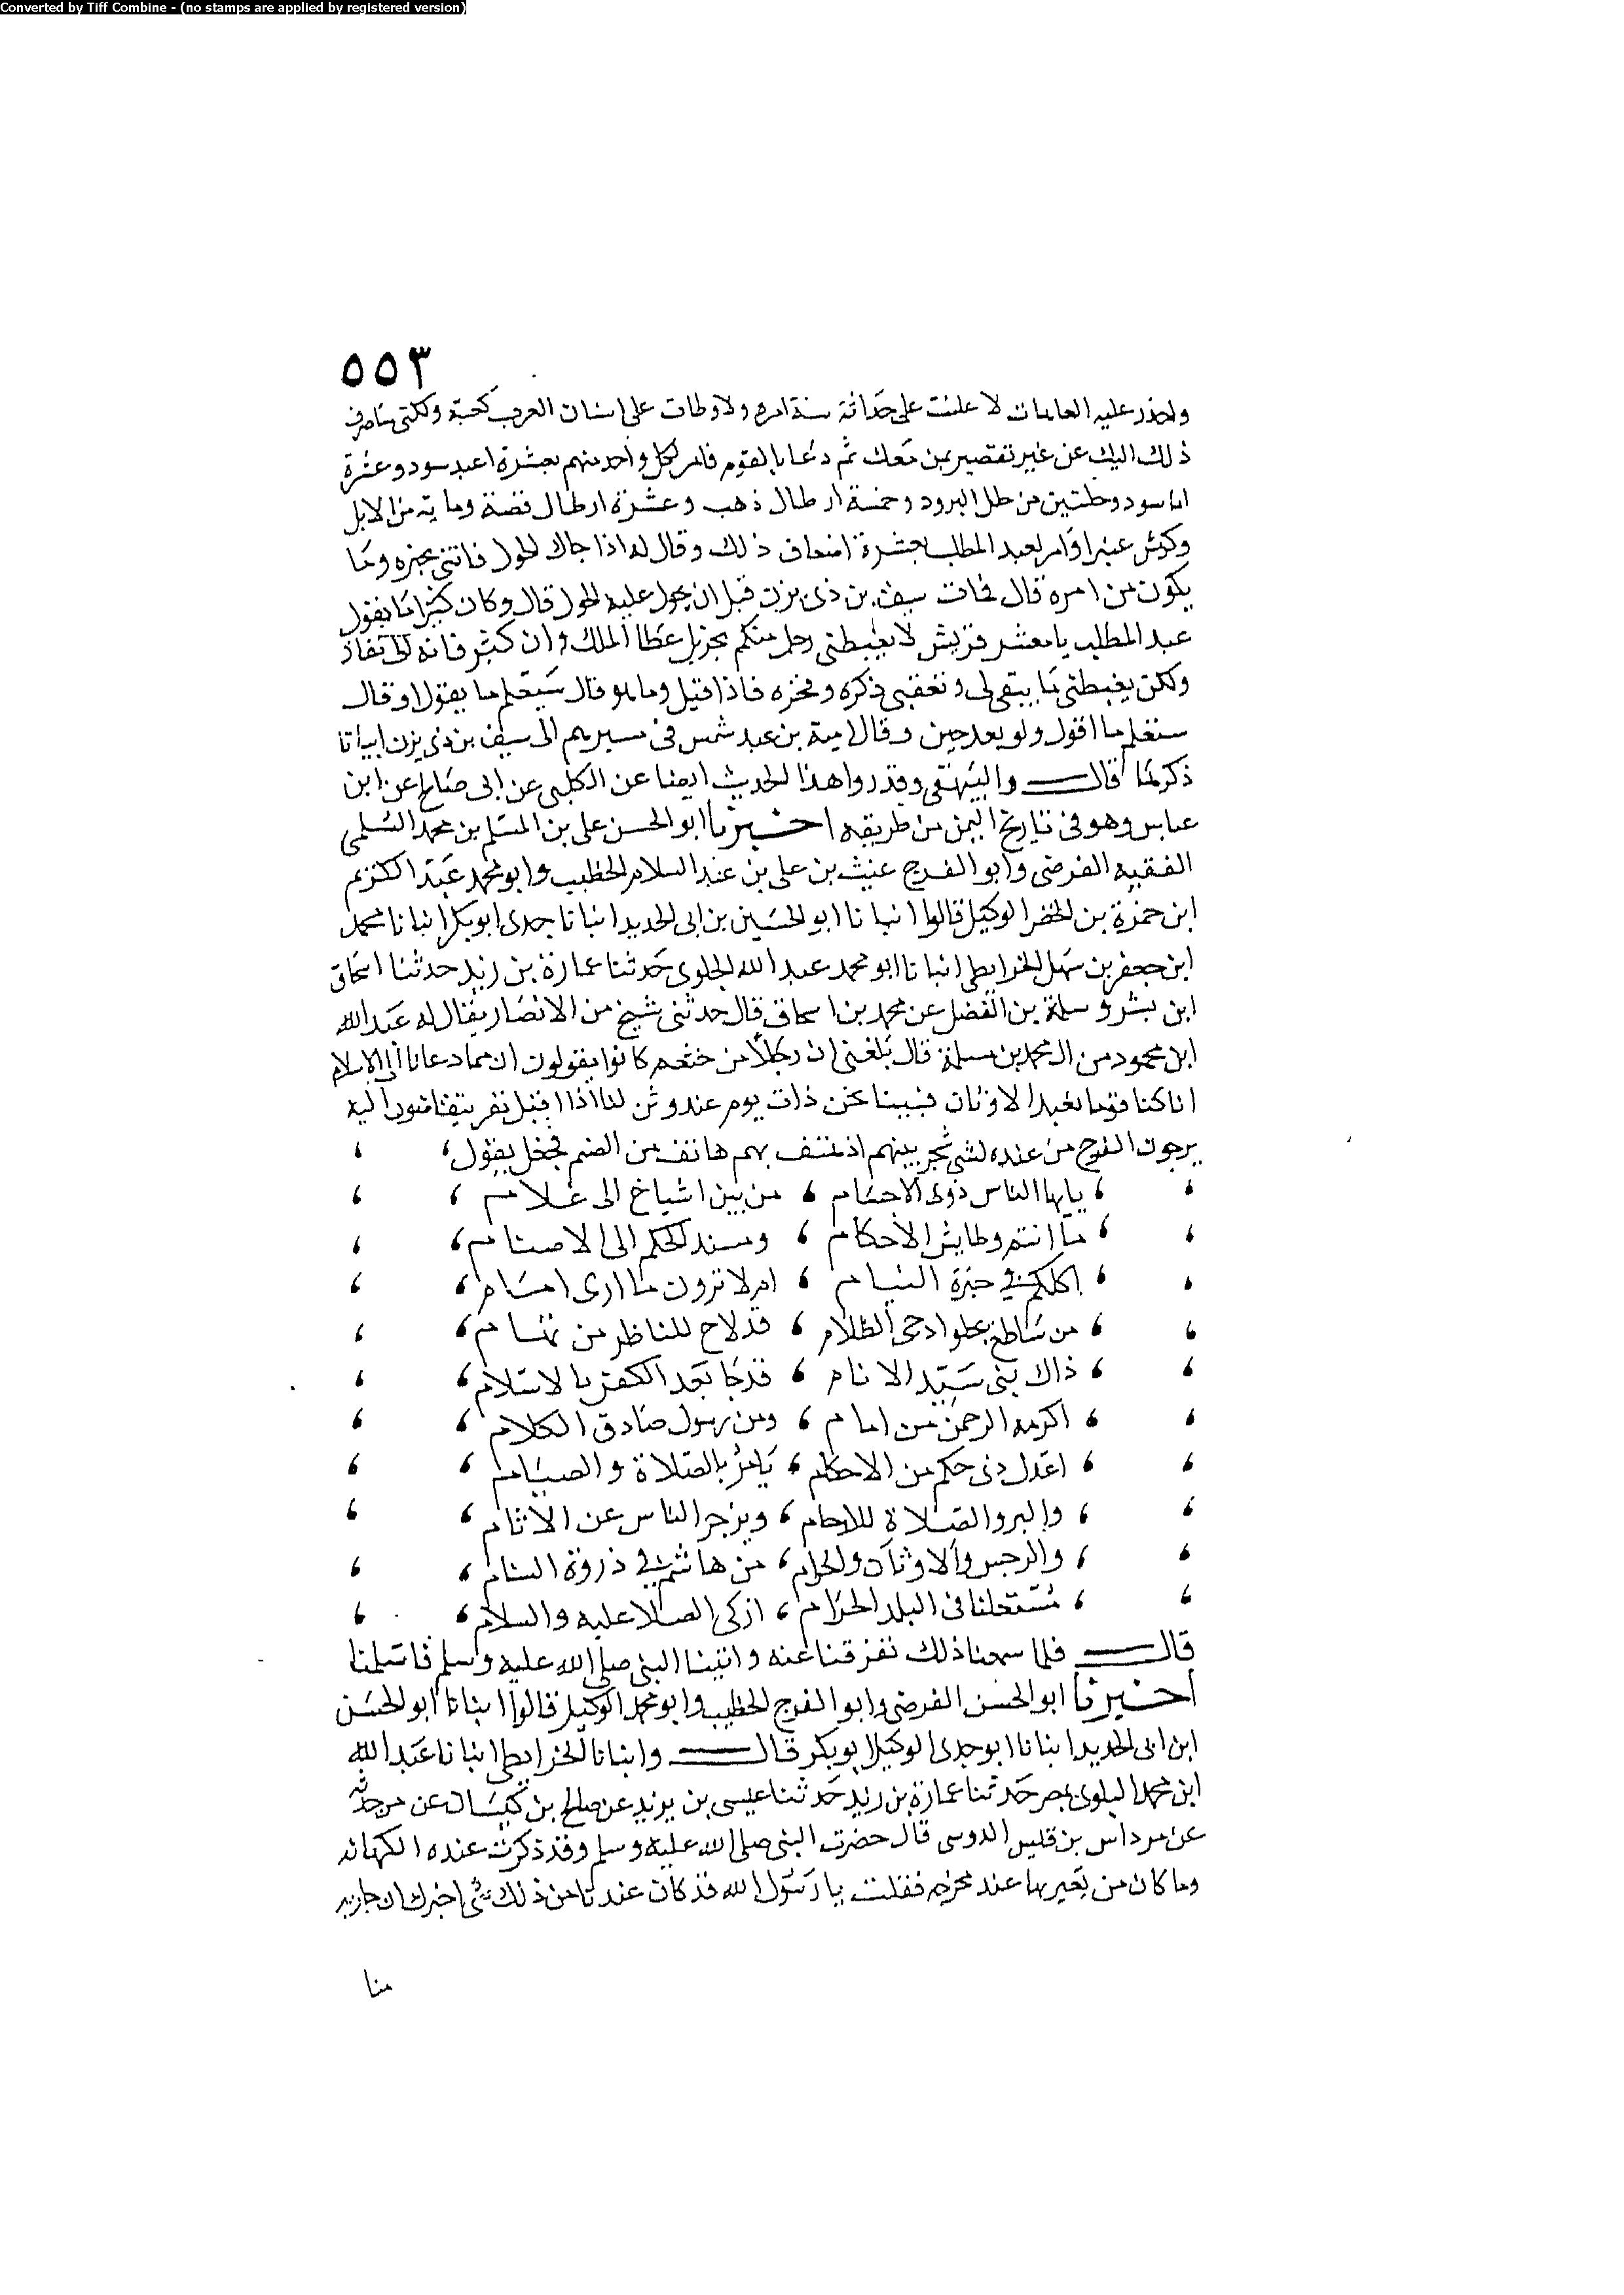 Converted by Tiff Combine - (no stamps are applied by registered version)
٥٥٣
واحذر عليه العاهات لا علنت على حداثة سنه امره ولا وطات على اسنان العرب كعبه ولكنى صارف
ذلك اليك عن غير تقصير بمن معك ثم دعا بالقوم فامر لكل واحد منهم بعشرة اعبد سود وعشرة
اما سود وحلتين من حلل البرود وخمسة ارطال ذهب وعشرة ارطال فضة وماية من الابل
وكرش عنبرا وامر لعبد المطلب بعشرة اضعاف ذلك وقال له اذا جاك الحول فاتني بخبره وما
يكون من امره قال فمات سيف بن ذى يزن قبل ان يحول عليه الحول قال وكان كثيرا ما يقول
عبد المطلب يا معشر قريش لا يغبطنى رجل منكم بجزيل عطا الملك وان كثر فانه الى نفاد
ولكن يغبطنى بما يبقى لى ولعقبى ذكره وفخره فاذا قيل وما هو قال سيعلم ما يقول او قال
ستعلم ما اقول ولو بعد حين وقال امية بن عبد شمس فى مسيرهم الى سيف بن ذى يزن ابياتا
ذكرها قال والبيهقى وقد روا هذا الحديث ايضا عن الكلبى عن ابى صالح عن ابن
عباس وهو فى تاريخ اليمن من طريقه اخبرنا ابو الحسن على بن المسلم بن محمد السلمى
الفقيه الفرضى وابو الفرج غيث بن على بن عبد السلام الخطيب وابو محمد عبد الكريم
ابن حمزة بن الخضر الوكيل قالوا انبانا ابو الحسين بن ابى الحديد انبانا جدى ابو بكر انبانا محمد
ابن جعفر بن سهل الخرايطى انبانا ابو محمد عبد الله البلوى حدثنا عمارة بن زيد حدثنا اسحاق
ابن بشر وسلمة بن الفضل عن محمد بن اسحاق قال حدثنى شيخ من الانصار يقال له عبد الله
ابن محمود من ال محمد بن مسلمة قال بلغنى ان رجالا من خثعم كانوا يقولون ان مما دعانا الى الاسلام
انا كنا قوما نعبد الاوثان فبينا نحن ذات يوم عند وثن لنا اذ اقبل نفر يتقاضون اليه
يرجون الفرج من عنده لشى شجر بينهم اذ هتف بهم هاتف من الصنم فجعل يقول
يايها الناس ذوى الاجسام ، من بين اشياخ الى غلام
ما انتم وطايش الاحكام ، ومسند الحكم الى الاصنام
اكلكم فى حيرة النيام ، ام لا ترون ما ارى امام
من ساطع يجلوا دجى الظلام ، قد لاح للناظر من تهام
ذاك نبى سيد الانام ، قد جا بعد الكفر بالاسلام
اكرمه الرحمن من امام ، ومن رسول صادق الكلام
اعدل ذى حكم من الاحكام ، يامر بالصلاة والصيام
والبر والصلاة للارحام ، ويزجر الناس عن الاثام
والرجس والاوثان والحرام ، من هاشم فى ذروة السنام
مستعلنا فى البلد الحرام ، ازكى الصلا عليه والسلام
قال فلما سمعنا ذلك تفرقنا عنه واتينا النبى صلى الله عليه وسلم فاسلمنا
اخبرنا ابو الحسن الفرضى وابو الفرج الخطيب وابو محمد الوكيل قالوا انبانا ابو الحسن
ابن ابى الحديد انبانا ابو جدى الوكيل ابو بكر قال وانبانا الخرايطى انبانا عبد الله
ابن محمد البلوى بمصر حدثنا عمارة بن زيد حدثنا عيسى بن يزيد عن صالح بن كيسان عن من حدثه
عن مرداس بن قيس الدوسى قال حضرت النبى صلى الله عليه وسلم وقد ذكرت عنده الكهانه
وما كان من تغييرها عند مخرجه فقلت يا رسول الله قد كان عندنا من ذلك شى اخبرك ان جارية
منا